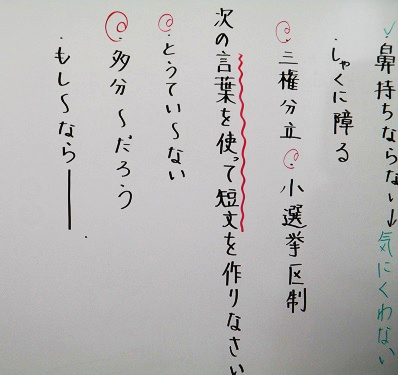 鼻持ちならない→気にくわない
・しゃくに障る
・三権分立 小選挙区制
次の言葉を使って短文を作りなさい
・とうてい〜ない
・多分〜だろう
・もし〜なら——